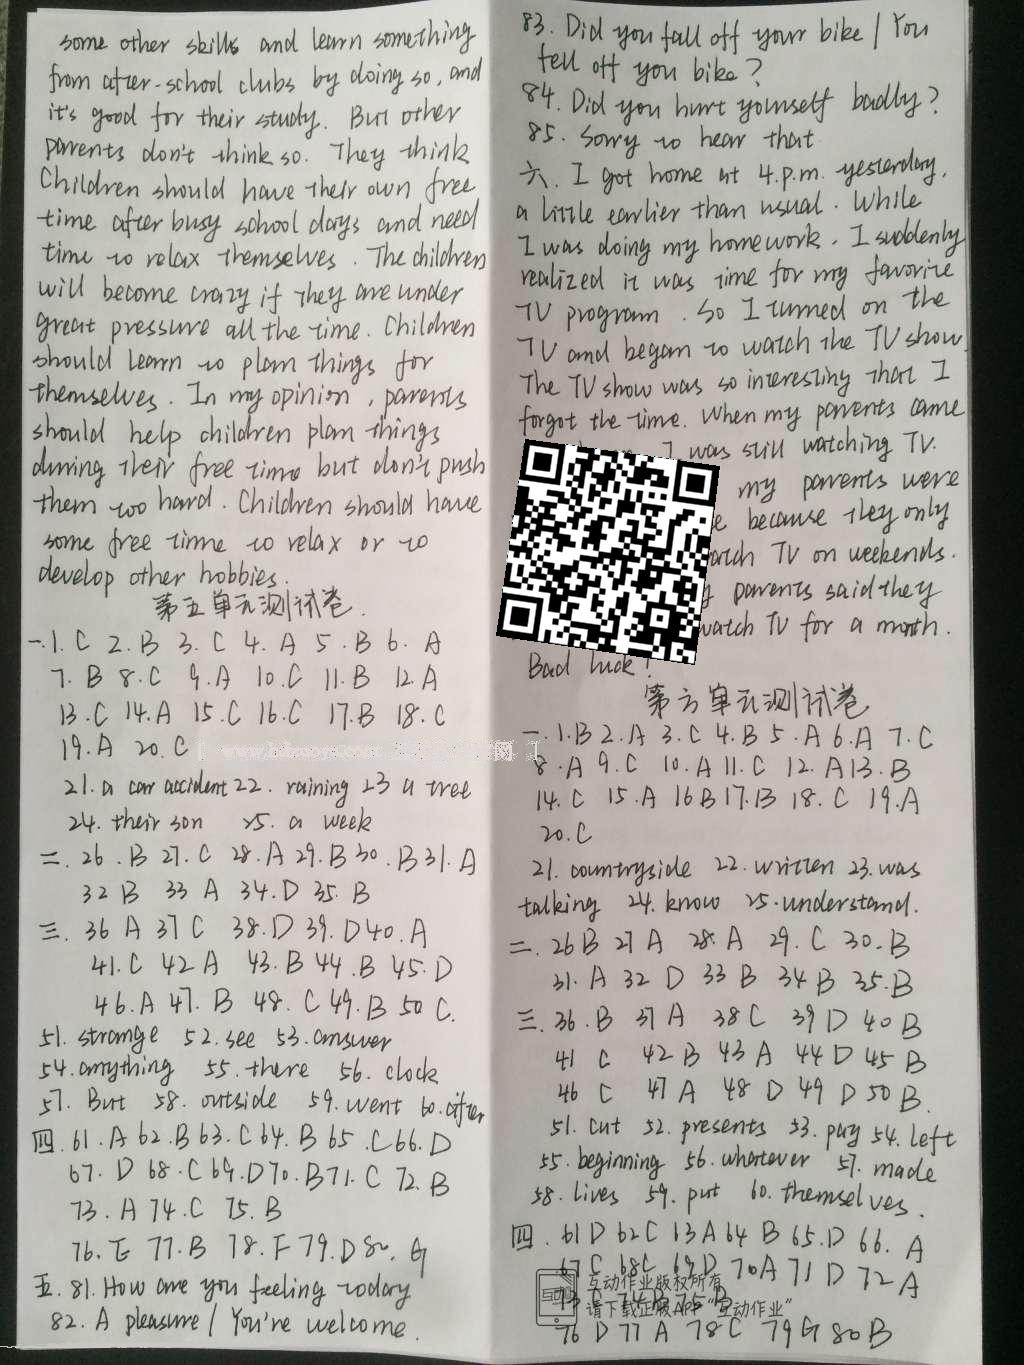 some other skills and learn something
from after-school clubs by doing so, and
it's good for their study. But other
parents don't think so. They think
Children should have their own free
time after busy school days and need
time to relax themselves. The children
will become crazy if they are under
great pressure all the time. Children
should learn to plan things for
themselves. In my opinion, parents
should help children plan things
during their free time but don't push
them too hard. Children should have
some free time to relax or to
develop other hobbies.
第五单元测试卷.
一.1.C 2.B 3.C 4.A 5.B 6.A
7.B 8.C 9.A 10.C 11.B 12.A
13.C 14.A 15.C 16.C 17.B 18.C
19.A 20.C
21.a car accident 22. raining 23 a tree
24. their son 25. a week
二.26.B 27.C 28.A 29.B 30.B 31.A
32 B 33 A 34.D 35.B
三.36 A 37 C 38.D 39.D 40.A
41.C 42 A 43.B 44.B 45.D
46.A 47.B 48.C 49.B 50 C.
51. strange 52. see 53. answer
54. anything 55. there 56. clock
57. But 58. outside 59. went 60. after
四.61.A 62.B 63.C 64.B 65.C 66.D
67.D 68.C 69.D 70.B 71.C 72.B
73.A 74.C 75.B
76.E 77.B 78.F 79.D 80.G
五.81. How are you feeling today
82. A pleasure / You're welcome.
83. Did you fall off your bike / You
fell off you bike?
84. Did you hurt yourself badly?
85. Sorry to hear that
六. I got home at 4.p.m. yesterday,
a little earlier than usual. While
I was doing my homework, I suddenly
realized it was time for my favorite
TV program. So I turned on the
TV and began to watch the TV show.
The TV show was so interesting that I
forgot the time. When my parents came
I was still watching TV.
my parents were
because they only
watch TV on weekends.
parents said they
watch TV for a month.
Bad luck!
第六单元测试卷
一.1.B 2.A 3.C 4.B 5.A 6.A 7.C
8.A 9.C 10.A 11.C 12.A 13.B
14.C 15.A 16 B 17.B 18.C 19.A
20.C
21. countryside 22. written 23. was
talking 24. know 25. understand.
二.26 B 27 A 28.A 29.C 30.B
31.A 32 D 33 B 34 B 35.B
三.36.B 37 A 38 C 39 D 40 B
41 C 42 B 43 A 44 D 45 B
46 C 47 A 48 D 49 D 50 B.
51. cut 52. presents 53. pay 54. left
55. beginning 56. whatever 57. made
58. lives 59. put 60. themselves.
四.61 D 62 C 63 A 64 B 65.D 66.A
67 C 68 C 69 D 70 A 71 D 72 A
互动作业版权所有
请下载正版APP"互动作业"
76 D 77 A 78 C 79 G 80 B